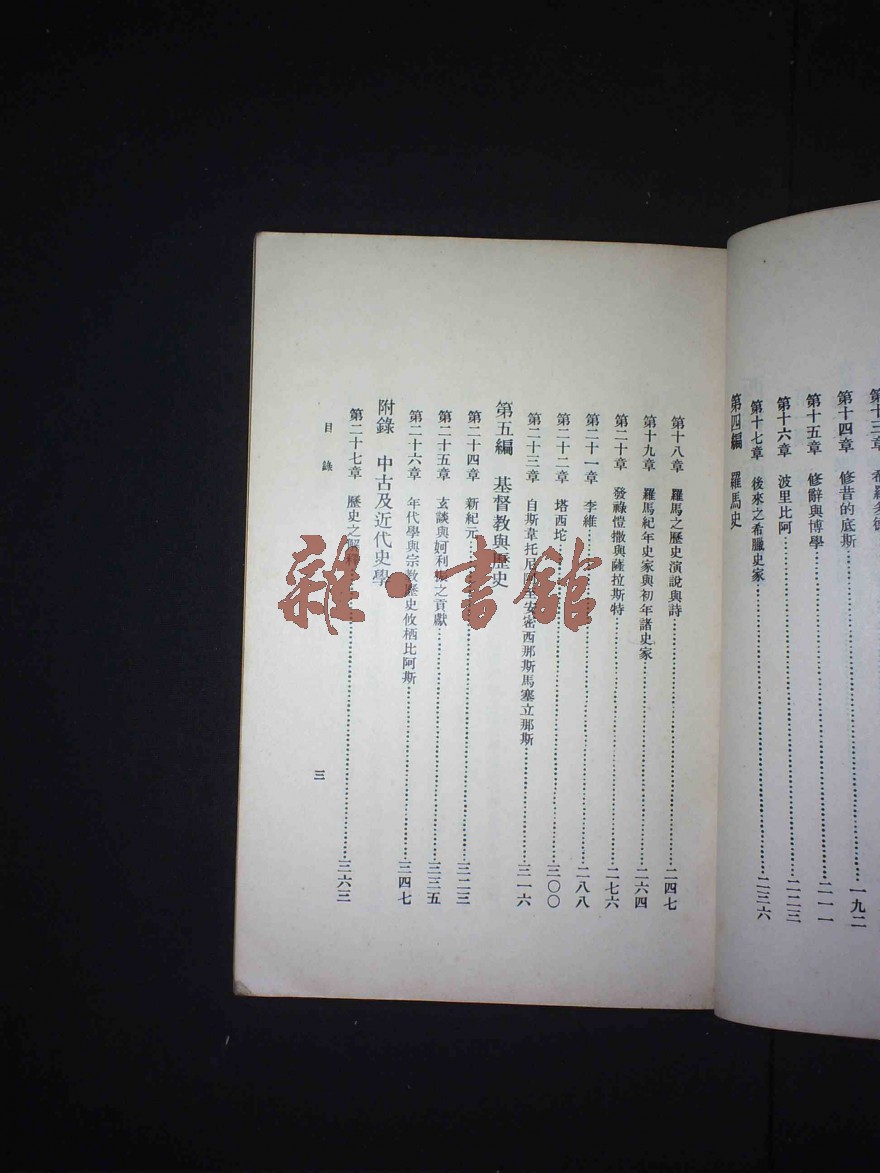 第十三章 希羅多德
第十四章 修昔的底斯……一九二
第十五章 修辭與博學……二一一
第十六章 波里比阿……二二三
第十七章 後來之希臘史家……二三六
第四編 羅馬史
第十八章 羅馬之歷史演說與詩……二四七
第十九章 羅馬紀年史家與初年諸史家……二六四
第二十章 發祿愷撒與薩拉斯特……二七六
第二十一章 李維……二八八
第二十二章 塔西坨……三〇〇
第二十三章 自斯韋托尼阿至安密西那斯馬塞立那斯……三一六
第五編 基督教與歷史
第二十四章 新紀元……三二三
第二十五章 玄談與妸利振之貢獻……三三五
第二十六章 年代學與宗教歷史攸栖比阿斯……三四七
附錄 中古及近代史學
第二十七章 歷史之解釋……三六三
目錄
三
雜·書館